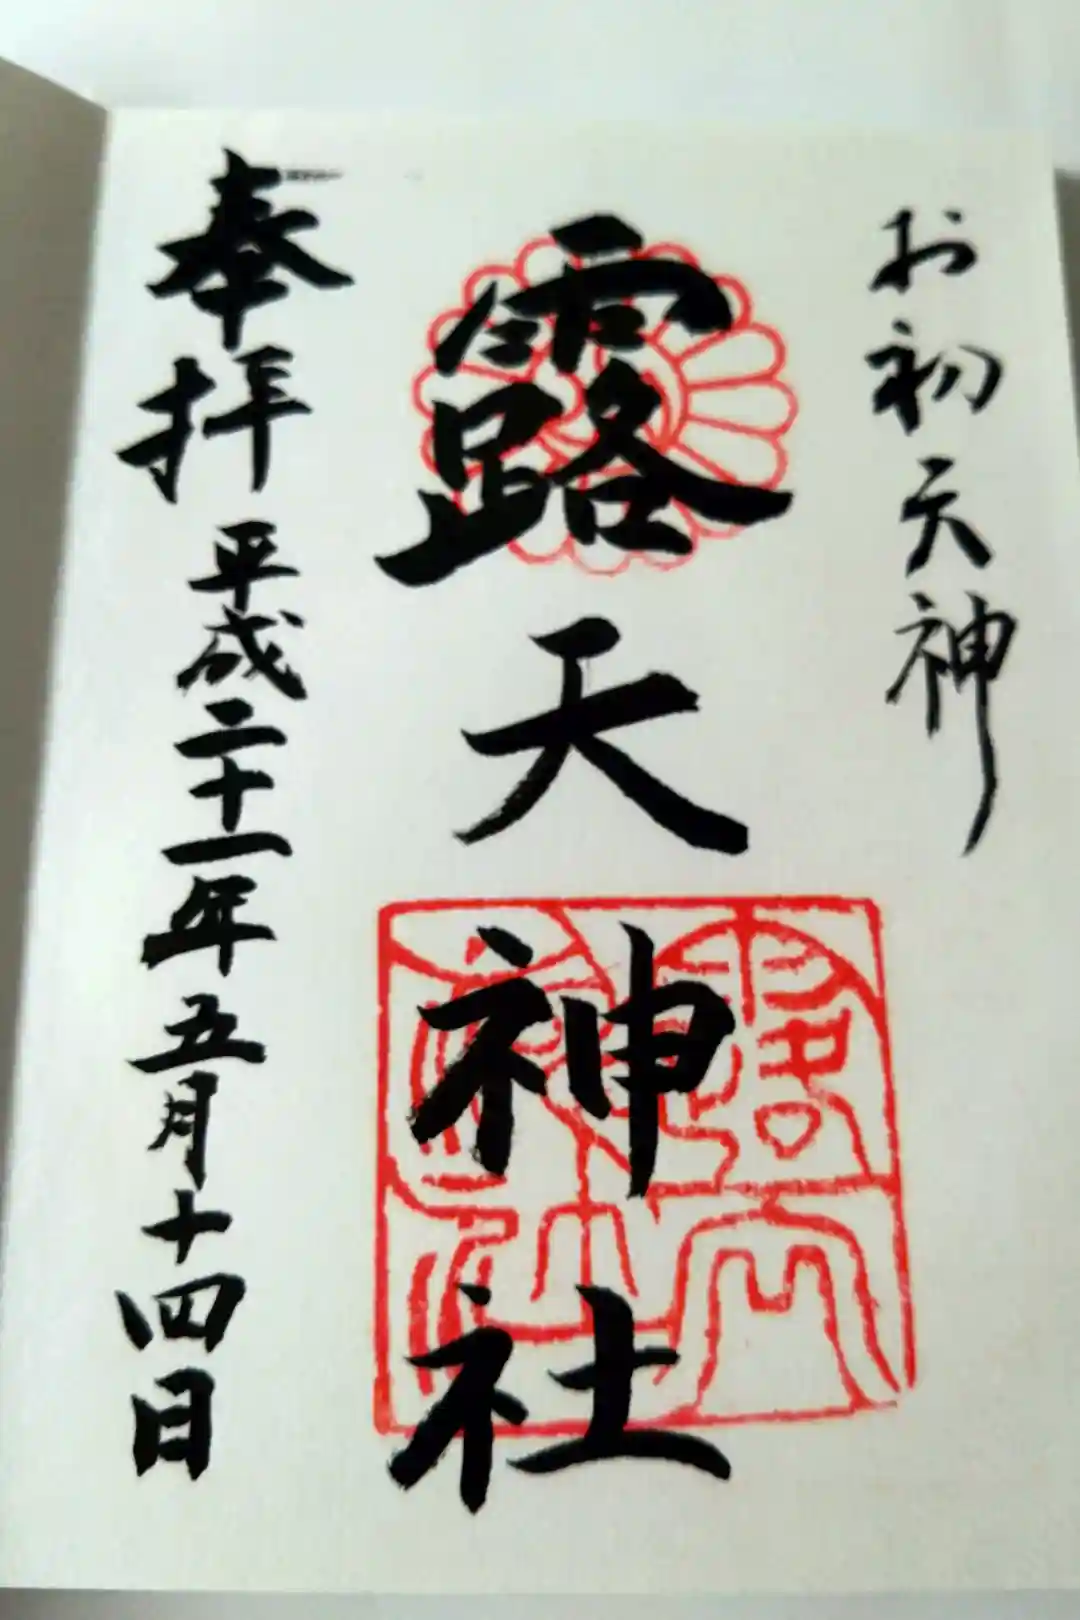 お初天神
露天神社
奉拝 平成二十一年五月十四日